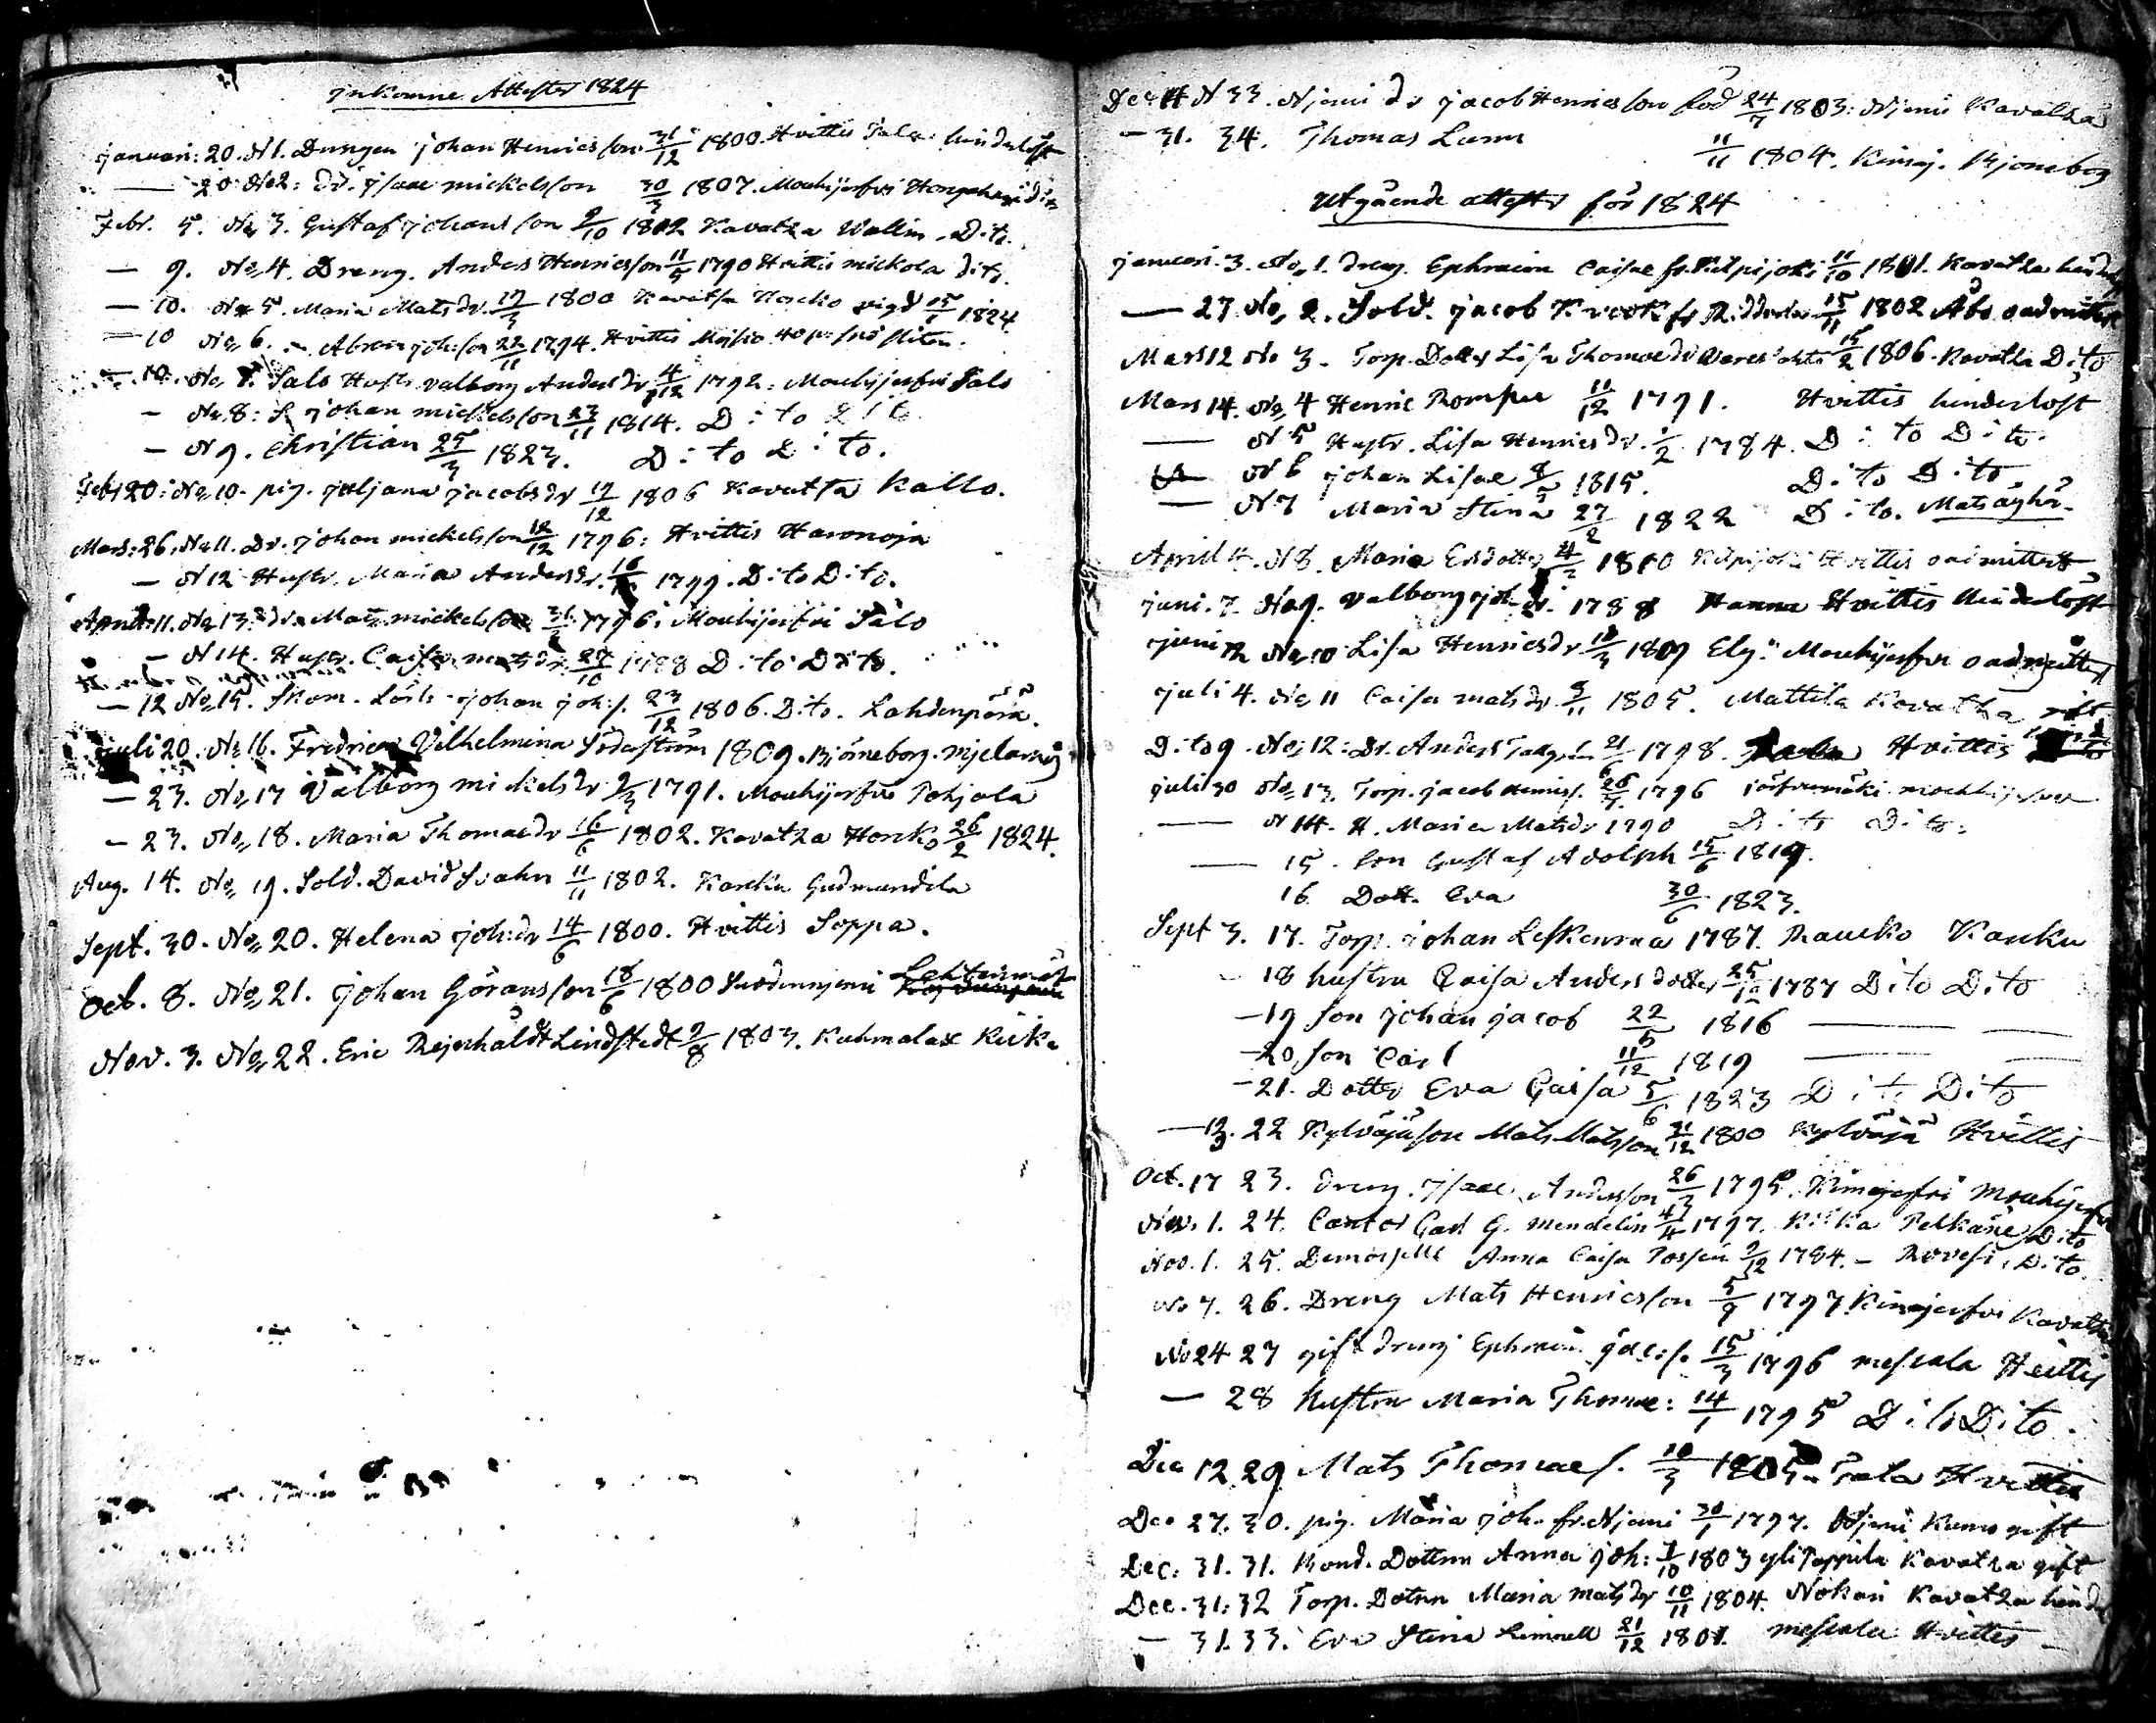 jnkomne Attester 1824
januari: 20. N1. Drengen johan Henricsson 31/12 1800. Hvittis Tala hinderlöst
— 20 No2: Dr. jsaac mickelsson 30/3 1807. Mouhijerfvi dito
Febr. 5. No 3. Gustaf johansson 9/10 1802 Kavatza Wallin. Dito.
— 9. No 4. Dreng. Anders Henricsson 11/5 1790 Hvittis mickola dito.
— 10. No 5. Maria Matsdr. 17/3 1800 Kavatsa Horcko vigd 1824
— 10 No 6. Abram joh:son 22/11 1794. Hvittis
— 10. No 7. Salo Hustr. valborg Andersdr 4/12 1792: Mouhijerfvi Salo
— No 8: johan mickelsson 23/11 1814. Dito Dito
— N 9. Christian 25/3 1823. Dito Dito.
Febr 20: No 10. pig. juljana jacobsdr 17/12 1806 Kavatsa Kallo.
Mars: 26. No 11. Dr. johan mickelsson 12/12 1796: Hvittis Haronoja
— N 12 Hustr. Maria Andersdr. 1799. Dito Dito.
April 11. No 13. dr. Mats mickelson 1796: Mouhijerfvi Salo
— N 14. Hustr. Caisa matsdr 27/10 1788 Dito Dito.
— 12 No 15. Skom. Lärl. johan joh:s. 23/12 1806. Dito. Lahdenpärä.
juli 20. No 16. Fredrica Vilhelmina Söderström 1809. Björneborg.
— 23. No 17 Valborg mickelsdr 9/3 1791. Mouhijerfvi Pohjola
— 23. No 18. Maria Thomaedr 16/6 1802. Kavatza Horcko 26/2 1824.
Aug. 14. No 19. Sold. David Svahn 11/11 1802. Karcku Gudmundila
Sept. 30. No 20. Helena joh:dr 14/6 1800. Hvittis Soppa.
Oct. 8. No 21. johan Göransson 18/6 1800 Suodenniemi
Nov. 3. No 22. Eric Rejnhaldt Lindstedt 9/8 1803. Kuhmalax Kiika
Dec 14 N 33. Njemi dr jacob Henricsson född 24/7 1803: Njemi Kavatza
— 31. 34. Thomas Lunn 11/11 1804. Björneborg
Utgående attester för 1824
januari. 3. No 1. dreng. Ephraim Caisae fr. Kilpijoki 11/10 1801. Kavatza
— 27 No 2. Sold. jacob Krook fr. 15/11 1802 Åbo oadmitterad
Mars 12 No 3. Torp. Dotter Lisa Thomaedr 15/2 1806. Kavatza Dito
Mars 14. No 4 Henric Rompu 11/12 1791. Hvittis hinderlöst
— N 5 Hustr. Lisa Henricsdr. 1/2 1784. Dito Dito.
— N 6 johan Lisae 1815. Dito Dito
— N 7 Maria Stina 27/2 1822 Dito.
April 4. N 8. Maria Ersdotter 1800 Kilpijoki Hvittis oadmitterad
juni. 7. No 9. valborg joh:dr. 1788 Hanna Hvittis hinderlöst
juni 12 No 10 Lisa Henricsdr 18/3 1809 Mouhijerfvi oadmitterad
juli 4. No 11 Caisa matsdr. 9/11 1805. Mattila Kavatza gift
Dito 9. No 12: Dr. Anders 21/ 1798. Hvittis
juli 30 No 13. Torp. jacob Henricss. 26/7 1796 Mouhijerfvi
— N 14. H. Maria Matsdr 1790 Dito Dito.
— 15. Son Gustaf Adolph 15/6 1819.
16. Dott. Eva 30/6 1823.
Sept 3. 17. Torp. johan Leskenmaa 1787. Raucko Karcku
— 18 hustru Caisa Andersdotter 25/12 1787 Dito Dito
— 19 son johan jacob 22/5 1816 — —
— 20 son Carl 11/12 1819 — —
— 21. Dotter Eva Caisa 5/6 1823 Dito Dito
— 13. 22 Kylväjä son Mats Matsson 21/12 1800 Kylväjä Hvittis
Oct. 17 23. dreng. jsaac Andersson 26/3 1795. Kinojerfvi Mouhijerfvi
Nov. 1. 24. Cantor Carl G. mendelin 4/4 1797. Kiika Pelkäne Dito
Nov. 1. 25. Demoiselle Anna Caisa 9/12 1784. — Rovesi, Dito.
No 7. 26. Dreng Mats Henricsson 5/9 1797 Kinojerfvi Kavatza
No 24 27 gift dreng Ephraim jac:s. 15/3 1796 mescala Hvittis
— 28 Hustru Maria Thomae: 14/1 1795 Dito Dito.
Dec 12 29 Mats Thomaes. 18/3 1805. Tala Hvittis
Dec 27. 30. pig. Maria joh. fr. Njemi 30/1 1797. Njemi Kumo gift
Dec. 31. 31. Bond. Dottren Anna joh: 7/10 1803 yliPappila Kavatza gift
Dec. 31: 32 Torp. Dotren Maria matsdr 10/11 1804. Nokari Kavatza
— 31. 33. Eva Stina Limnell 21/12 1801. mescala Hvittis —